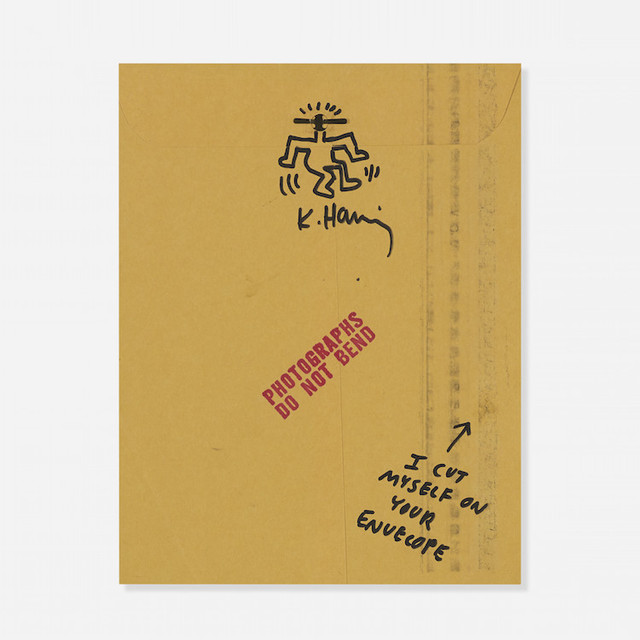 K. Haring
PHOTOGRAPHS
DO NOT BEND
I CUT
MYSELF ON
YOUR
ENVELOPE